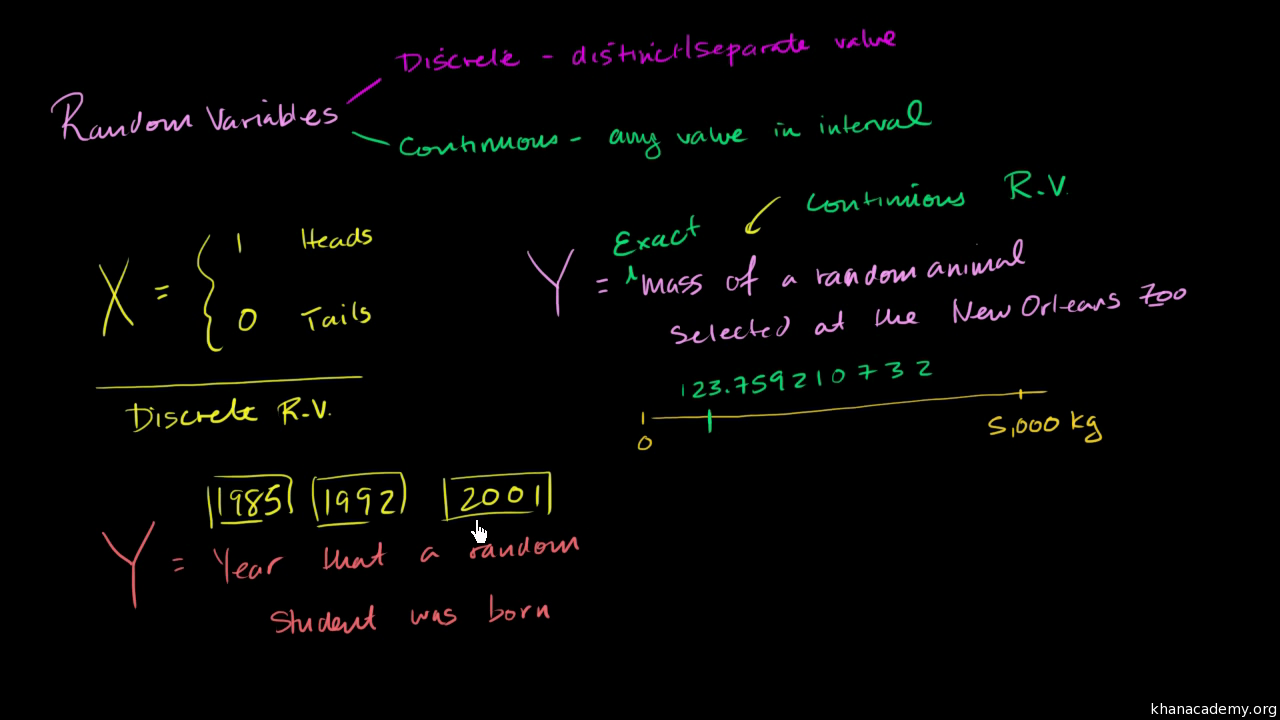 Discrete - distinct/separate value
Random Variables
Continuous - any value in interval
Continuous R.V.
X = { 1 Heads
0 Tails
Discrete R.V.
Y = Exact mass of a random animal
selected at the New Orleans Zoo
123.759210732
0 5,000 kg
1985 1992 2001
Y = Year that a random
student was born
khanacademy.org